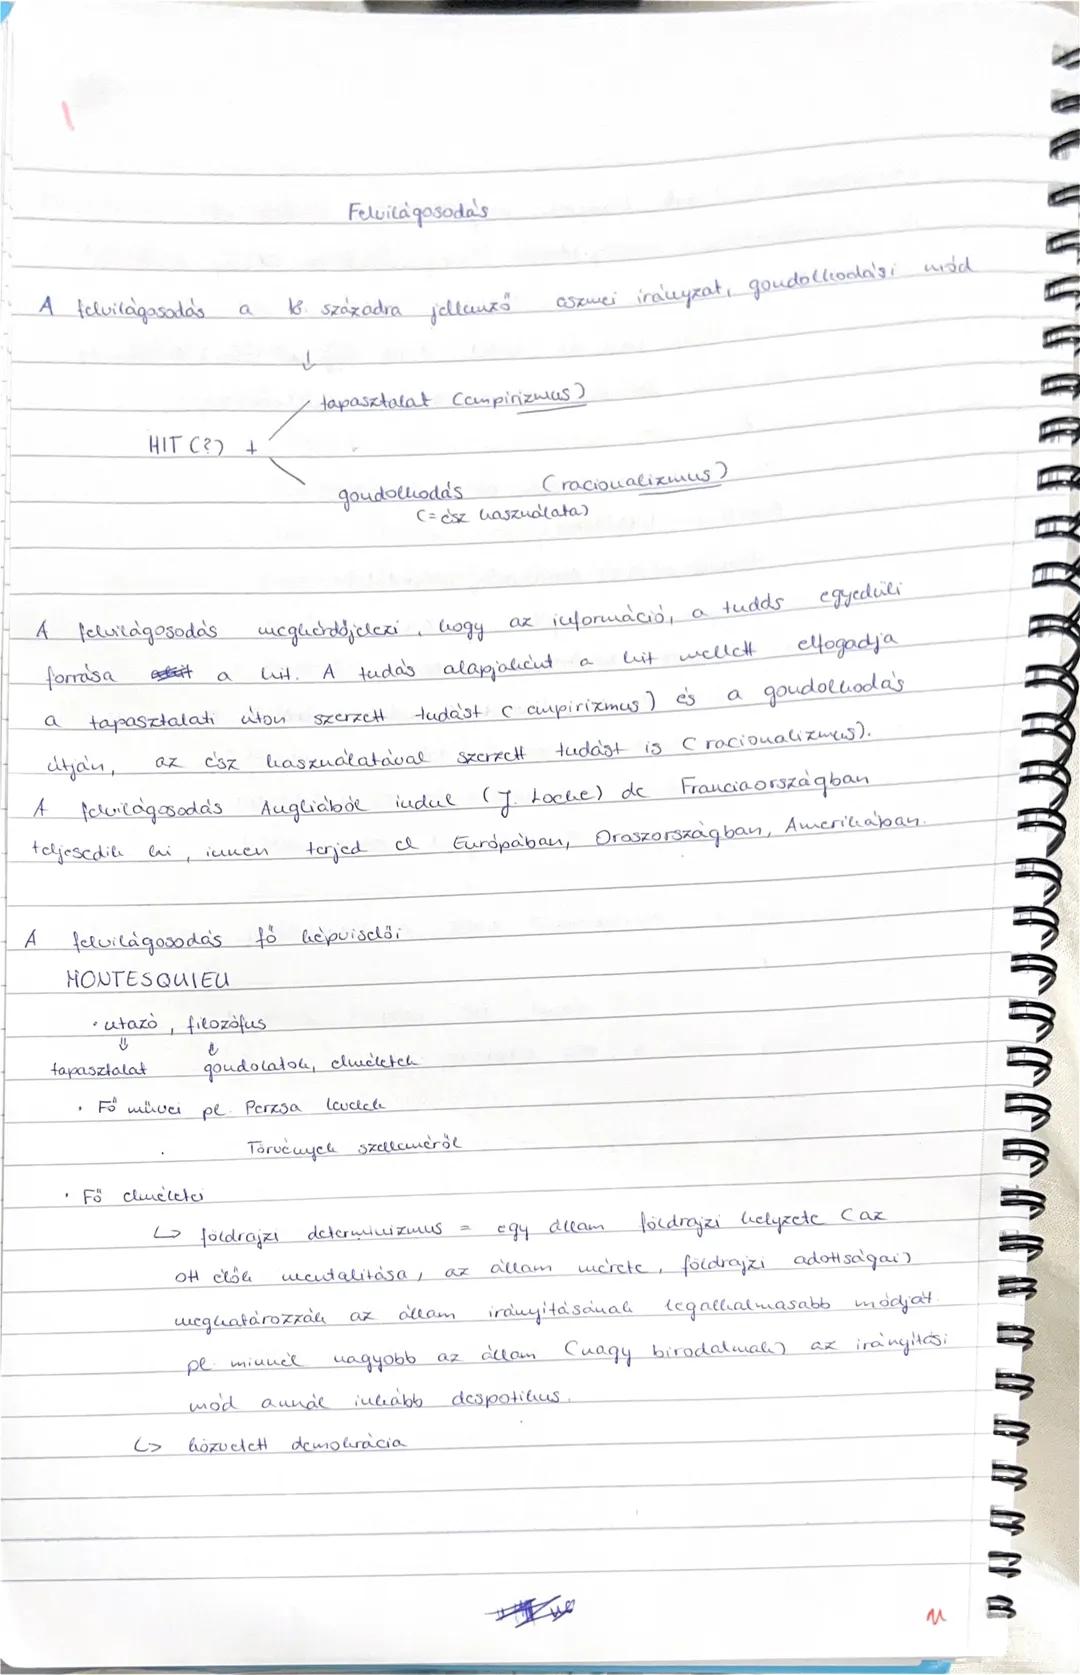 Felvilágosodás
A felvilágosodás a 18. századra jellemző eszmei irányzat, gondolkodási mód
↓
tapasztalat (empirizmus)
HIT (?) +
gondolkodás (racionalizmus)
(= ész használata)
A felvilágosodás megkérdőjelezi, hogy az információ, a tudás egyedüli
forrása a hit. A tudás alapjaként a hit mellett elfogadja
a tapasztalati úton szerzett tudást (empirizmus) és a gondolkodás
útján, az ész használatával szerzett tudást is (racionalizmus).
A felvilágosodás Angliából indul (J. Locke) de Franciaországban
teljesedik ki, innen terjed el Európában, Oroszországban, Amerikában.
A felvilágosodás fő képviselői
MONTESQUIEU
• utazó, filozófus
⇓ ⇓
tapasztalat gondolatok, elméletek
• Fő művei pl. Perzsa levelek
Törvények szelleméről
• Fő elméletei
↳ földrajzi determinizmus = egy állam földrajzi helyzete (az
ott élők mentalitása, az állam mérete, földrajzi adottságai)
meghatározzák az állam irányításának legalkalmasabb módját.
pl. minnél nagyobb az állam (nagy birodalmak) az irányítási
mód annál inkább despotikus.
↳ közvetett demokrácia